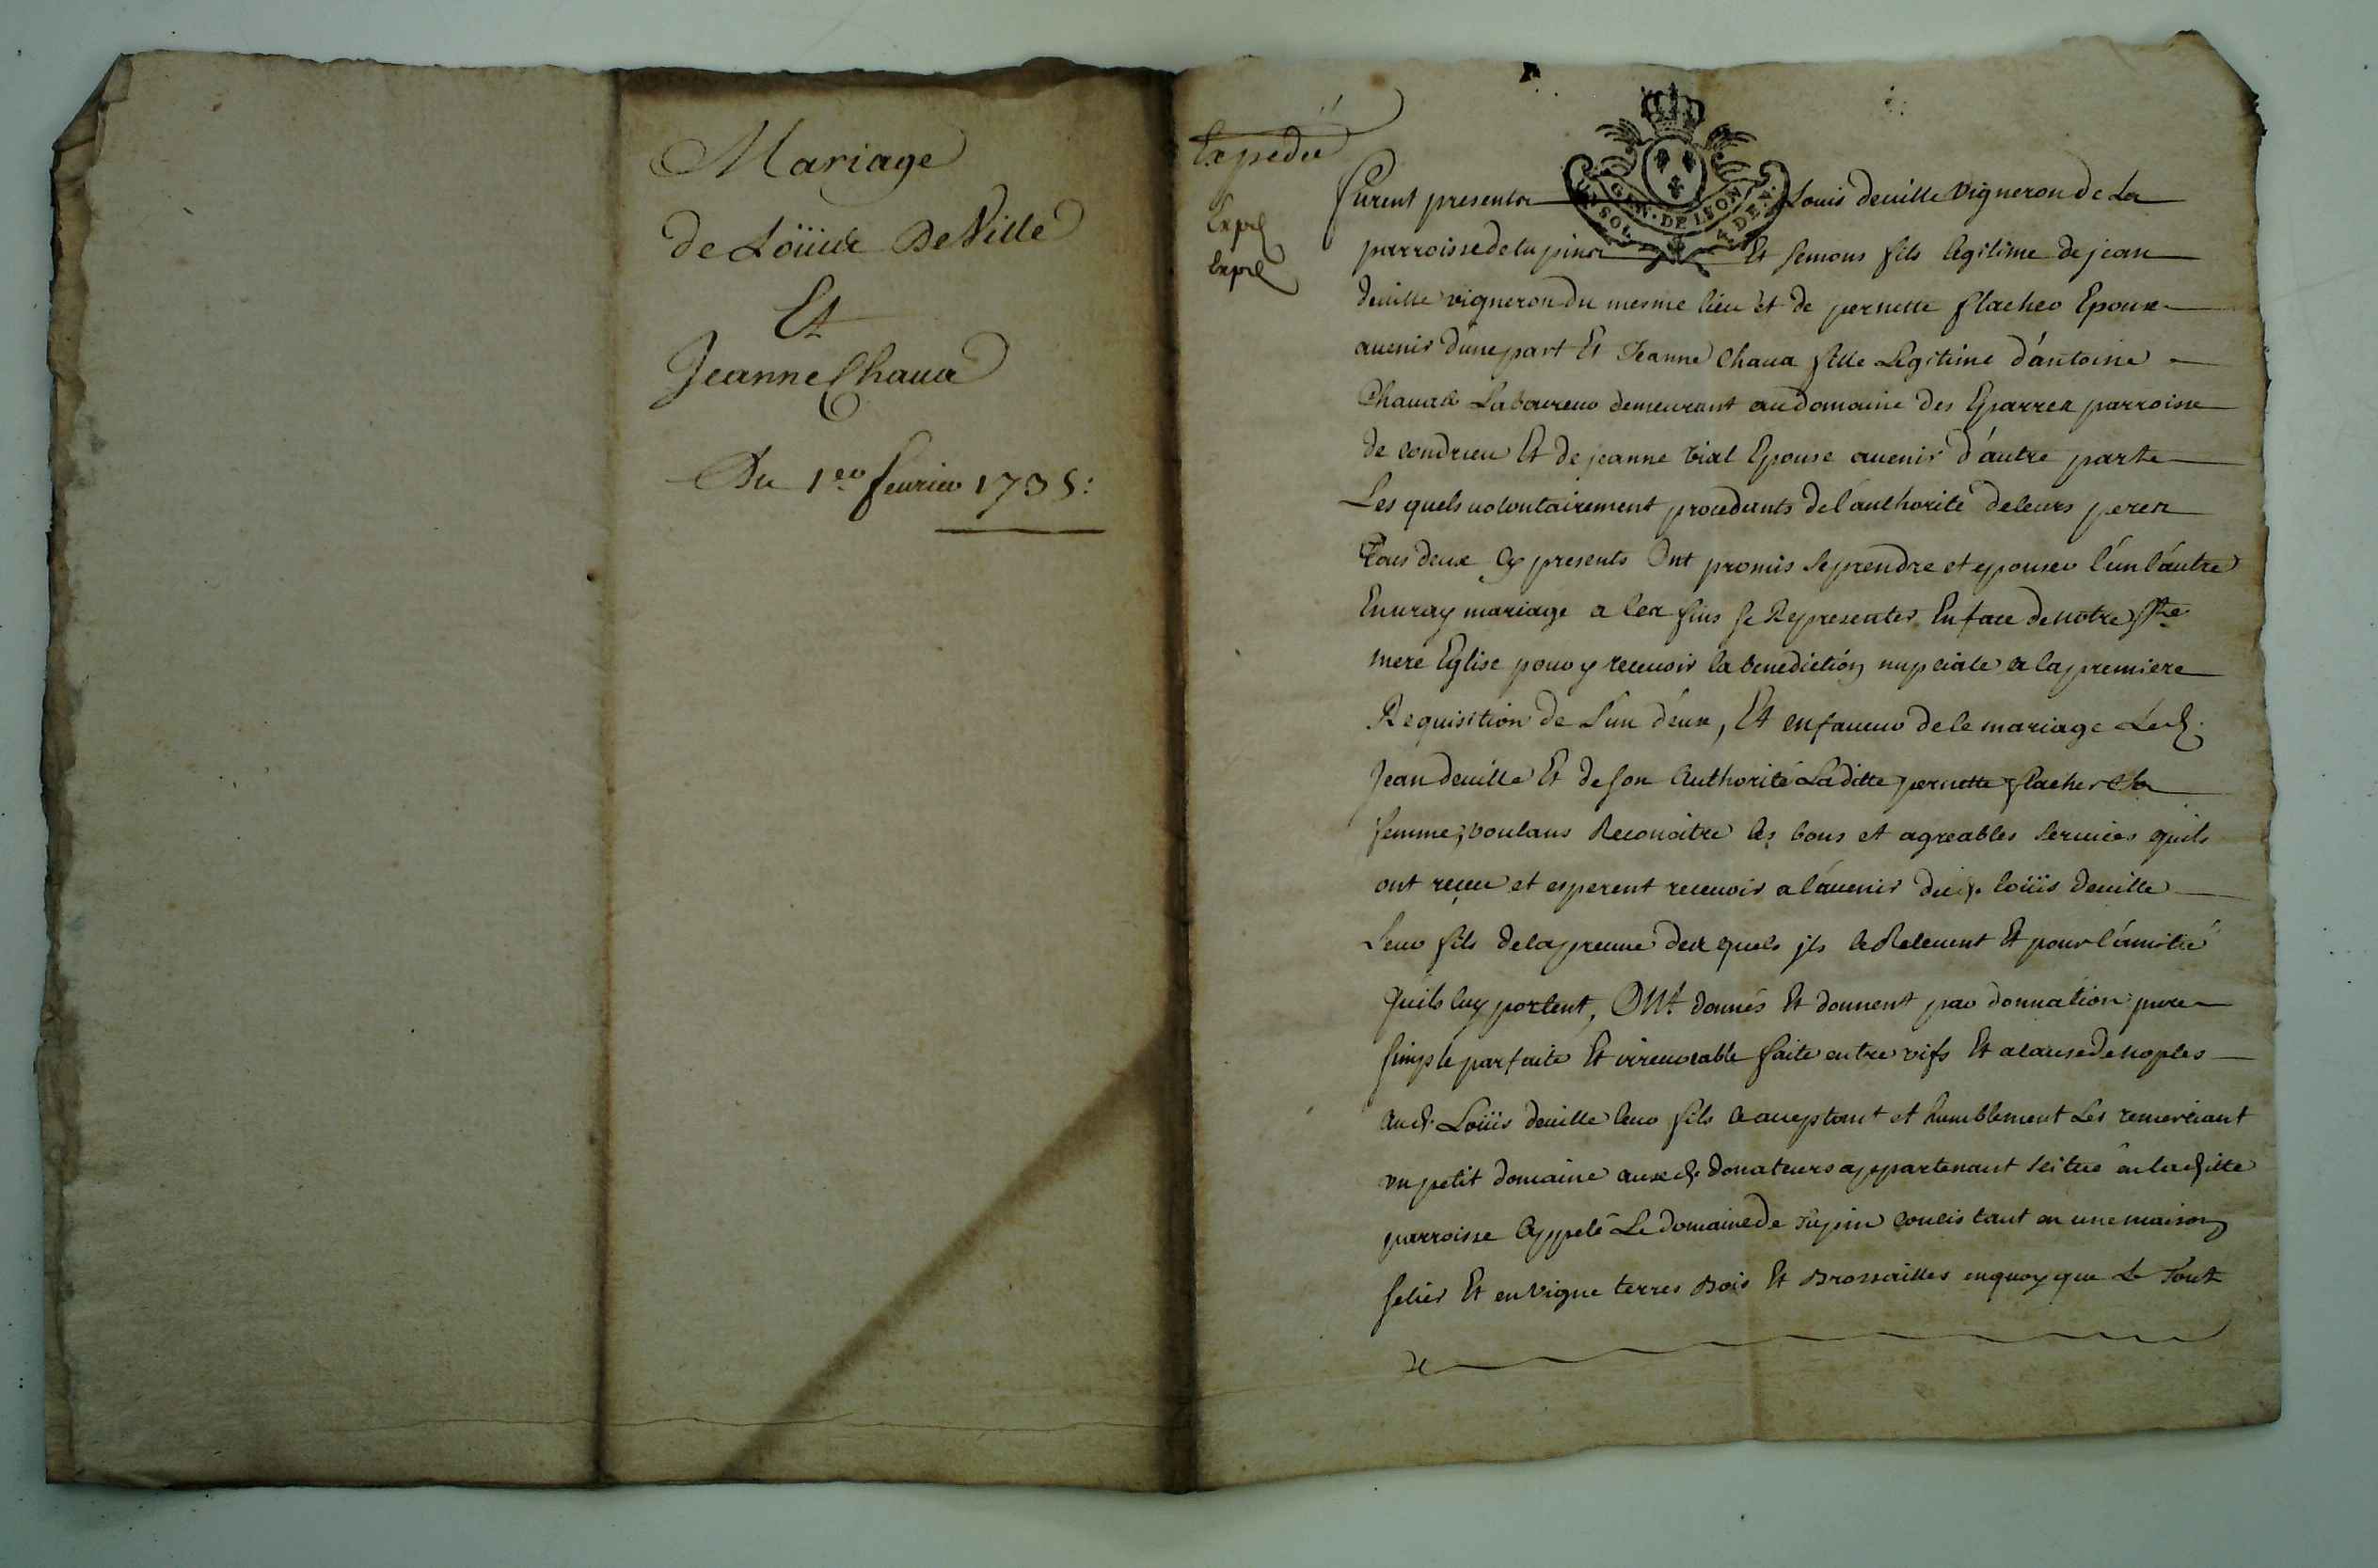 Mariage
de Loüis De Ville
Et
Jeanne Chaua
Du 1er feurier 1735:
Expedié
Expé
Expé
furent presents Louis deuille Vigneron de La
GEN. DE LYON
parroisse de tupins Et Semons fils legitime de jean
deuille vigneron du mesme lieu et de pernette flacher Epoux
auenir d'une part Et Jeanne Chaua fille Legitime d'antoine
Chaua Laboureur demeurant au domaine des Eparres parroisse
de Condrieu Et de jeanne vial Epouse auenir d'autre part
Les quels uolontairement procedants de l'authorité de leurs peres
Tous deux Cy presents Ont promis se prendre et epouser l'un l'autre
En uray mariage a les fins se Representer En face de notre Ste
mere Eglise pour y receuoir la benediction nupciale a la premiere
Requisition de L'un d'eux, Et en faueur de ce mariage Led.
Jean deuille Et de son Authorité Laditte pernette flacher Sa
femme, voulans Reconoitre les bons et agreables seruices quils
ont reçeu et esperent receuoir a l'auenir dud. loüis deuille
Leur fils de la preuue des quels jls le Releuent Et pour l'amitié
Quils luy portent, Ont donnés Et donnent par donnation pure
simple parfaite Et irreuocable faite entre vifs Et a cause de noples
aud. Loüis deuille leur fils le acceptant et humblement Les remerciant
vn petit domaine auxd. donateurs appartenant scitué en laditte
parroisse Appelé Le domaine de Tupin consistant en une maison
selier Et en Vigne terres Bois Et Brossailles en quoy que Le Tout